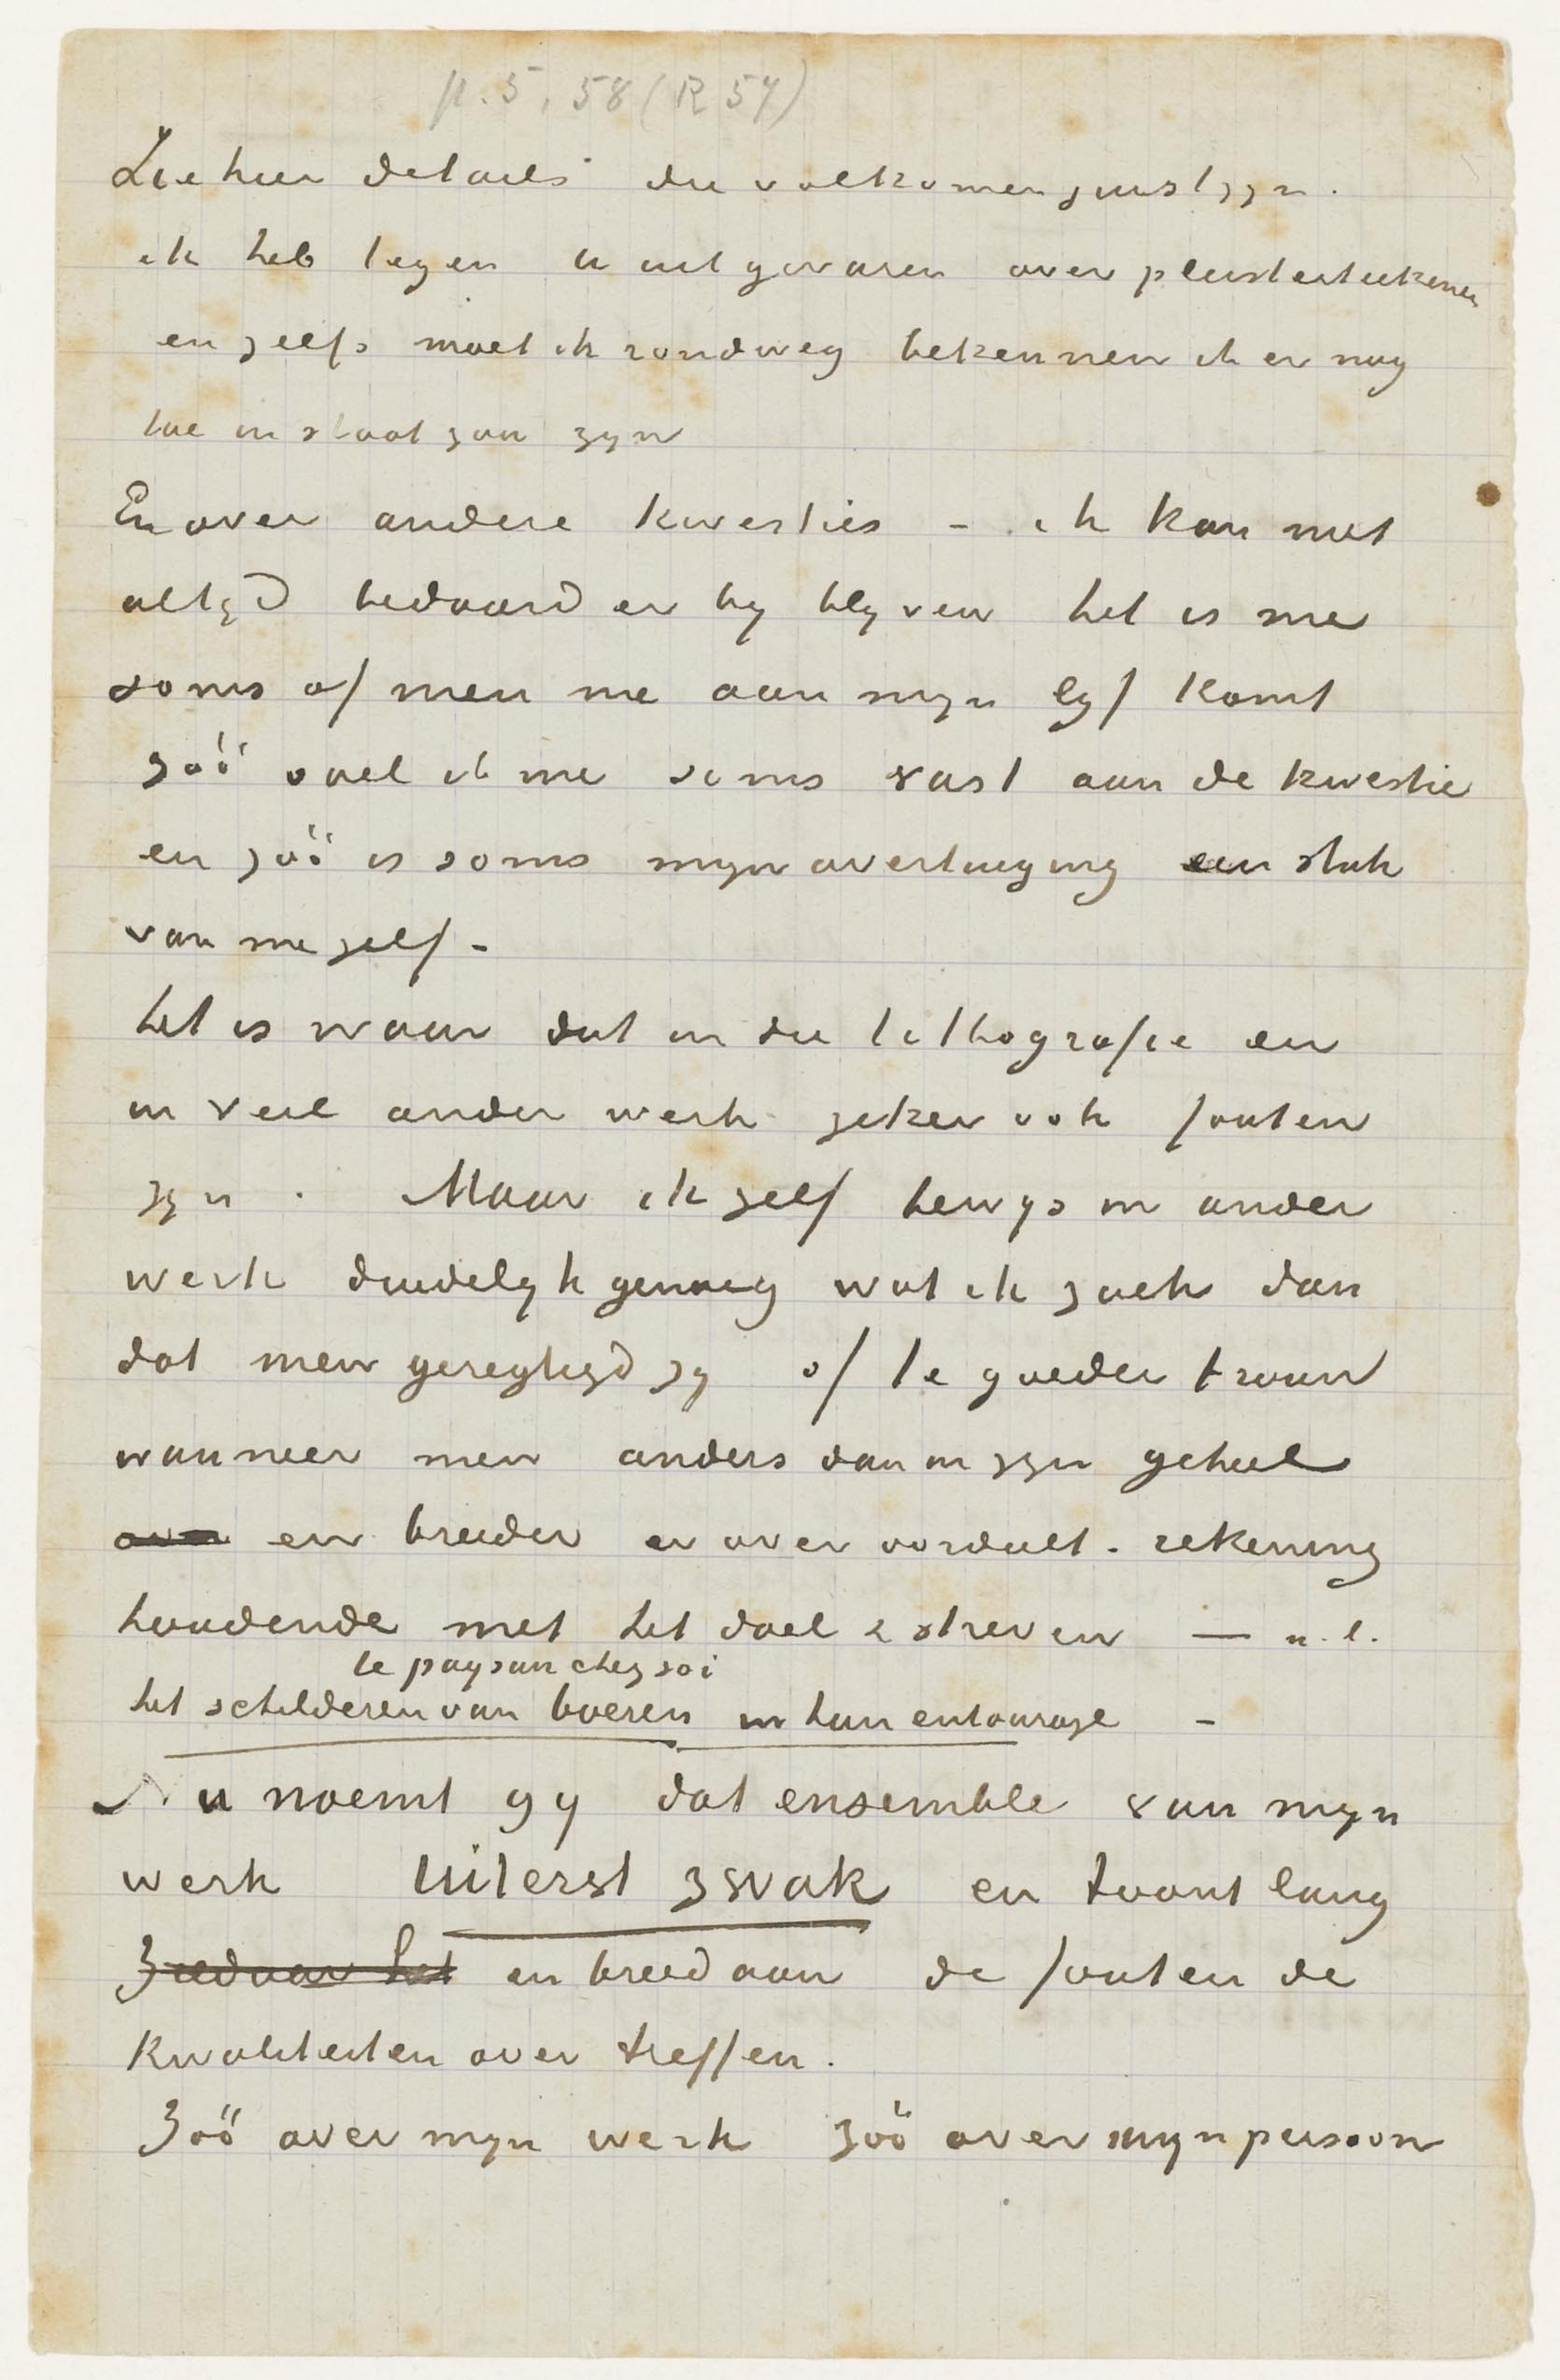 p. 5, 58 (R 57)
Zie hier details die volkomen juist zyn.
ik heb tegen u uitgevaren over pleisterteekenen
en zelfs moet ik rondweg bekennen ik er nog
toe in staat zou zyn
En over andere kwesties – ik kan niet
altyd bedaard er by blyven het is me
soms of men me aan myn lyf komt
zóó voel ik me soms vast aan de kwestie
en zóó is soms myn overtuiging een stuk
van me zelf –
het is waar dat in die lithografie en
in veel ander werk zeker ook fouten
zyn. Maar ik zelf bewys in ander
werk duidelyk genoeg wat ik zoek dan
dat men geregtigd zy of te goeder trouw
wanneer men anders dan in zyn geheel
over en breeder er over oordeelt. rekening
houdende met het doel & streven — n.l.
le paysan chez soi
het schilderen van boeren in hun entourage –
Nu noemt gy dat ensemble van myn
werk uiterst zwak en toont lang
Ziedaar het en breed aan de fouten de
kwaliteiten over treffen.
Zóó over myn werk zóó over myn persoon